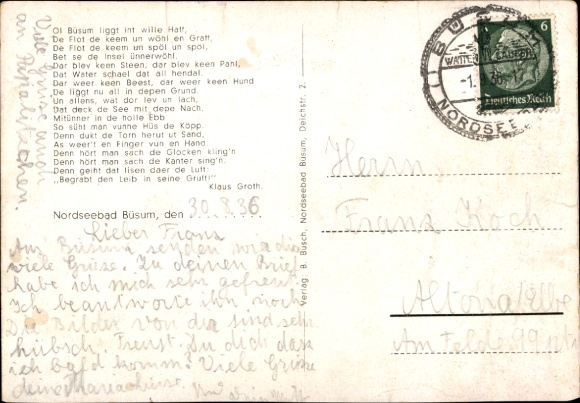 Ol Büsum liggt int wille Haff,
De Flot de keem un wöhl en Graff,
De Flot de keem un spöl un spöl,
Bet se de Insel ünnerwöhl.
Dar blev keen Steen, dar blev keen Pahl,
Dat Water schael dat all hendal.
Dar weer keen Beest, dar weer keen Hund
De liggt nu all in depen Grund.
Un allens, wat dor lev un lach,
Dat deck de See mit depe Nach.
Mitünner in de holle Ebb
So süht man vunne Hüs de Köpp.
Denn dukt de Torn herut ut Sand,
As weer't en Finger vun en Hand.
Denn hört man sach de Glocken kling'n
Denn hört man sach de Kanter sing'n.
Denn geiht dat lisen daer de Luft:
„Begrabt den Leib in seine Gruft!"
Klaus Groth.
Nordseebad Büsum, den 30.8.36
Lieber Franz
Aus Büsum senden wir dir
viele Grüsse. Zu deinen Brief
habe ich mich sehr gefreut
Ich beantworte ihn noch.
Die Bilder von dir sind sehr
hübsch. Freust du dich dass
ich bald komme? Viele Grüsse
deine
Viele Grüsse auch
an
Verlag: B. Busch, Nordseebad Büsum, Deichstr. 2.
BÜSUM
NORDSEE
6
Deutsches Reich
Herrn
Franz Koch
Altona/Elbe
Am Felde 99